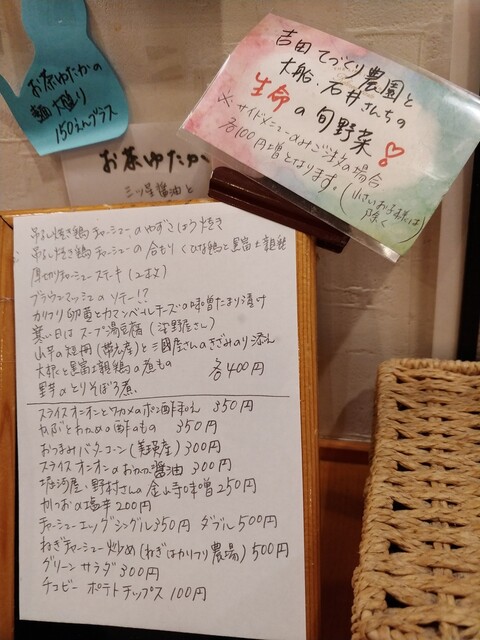 お茶ゆたかの
麺大盛り
150えんプラス
吉田てづくり農園と
大船・石井さんちの
生命の旬野菜
※サイドメニューのみご注文の場合
各100円増となります。(小さいお子様は除く)
お茶ゆたか
三ツ星醤油と
吊るし焼き鶏チャーシューのやずこしょう焼き
吊るし焼き鶏チャーシューの合もり くひな鶏と黒富士親鶏
厚切りチャーシューステーキ(2まい)
ブラウンマッシュのソテー!?
カリフリ卵黄とカマンベールチーズの味噌たまり漬け
寒い日はスープ湯豆腐(
山芋の短冊(帯広産)と三國屋さんのきざみのり添え
大根と黒富士親鶏の煮もの
里芋のとりそぼろ煮、 各400円
スライスオニオンとワカメのポン酢和え 350円
かぶとわかめの酢のもの 350円
おつまみバタコーン(美瑛産)300円
スライスオニオンのおかか醤油 300円
堀河屋・野村さんの金山寺味噌 250円
かつおの塩辛 200円
チャーシューエッグ シングル350円 ダブル500円
ねぎチャーシュー炒め(ねぎはカリフリ農場)500円
グリーンサラダ 300円
チコビー ポテトチップス 100円